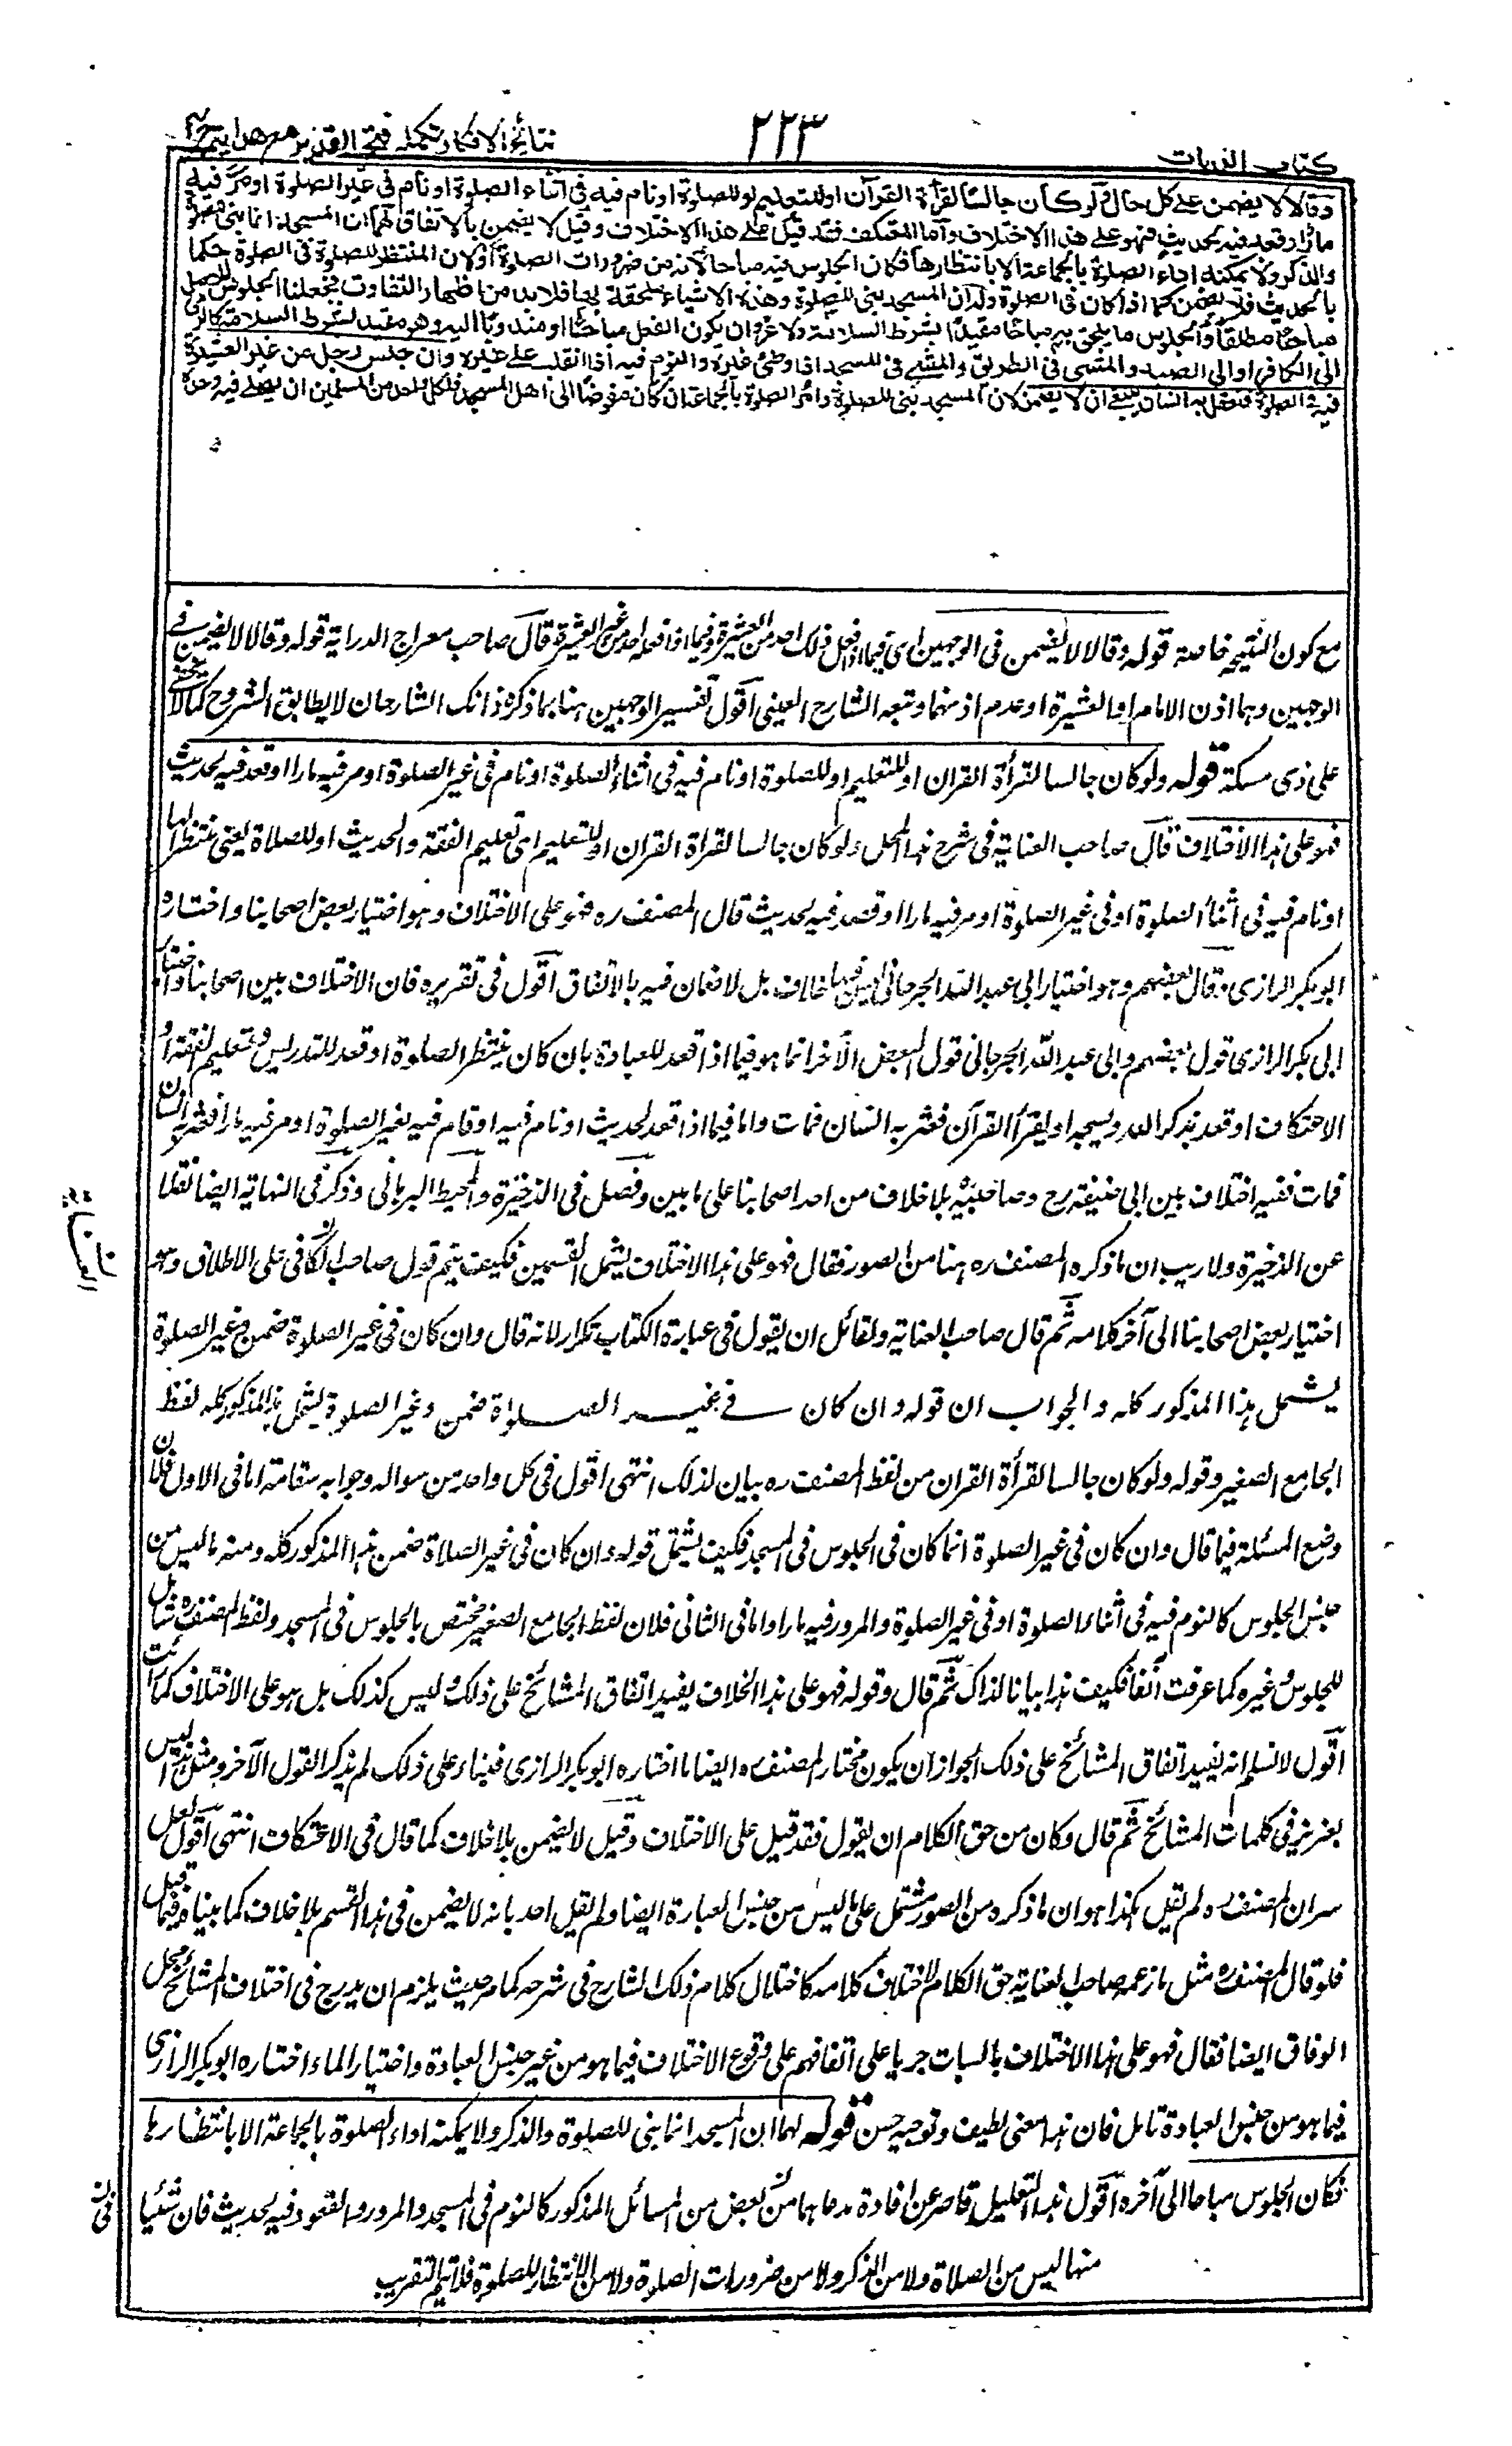 كتاب الديات
٢٢٣
نتائج الافكار تكمله فتح القدير مع هدايه ج
وقالا لا يضمن على كل حال ولو كان جالسا لقرأة القرآن اوللتعليم اوللصلوة او نام فيه في اثناء الصلوة او نام في غير الصلوة او مر فيه
مارا او قعد فيه لحديث فهو على هذا الاختلاف واما المعتكف فقد قيل على هذا الاختلاف وقيل لا يضمن بالاتفاق لهما ان المسجد انما بني للصلوة
والذكر ولا يمكنه اداء الصلوة بالجماعة الا بانتظارها فكان الجلوس فيه مباحا لانه من ضرورات الصلوة اولان المنتظر للصلوة في الصلوة حكما
بالحديث فلا يضمن كما اذا كان في الصلوة وله ان المسجد بني للصلوة وهذه الاشياء ملحقة بها فلابد من اظهار التفاوت فجعلنا الجلوس للاصل
مباحا مطلقا والجلوس ما يلحق به مباحا مقيدا بشرط السلامة ولا غرو ان يكون الفعل مباحا او مندوبا اليه وهو مقيد بشرط السلامة كالرمي
الى الكافر او الى الصيد والمشي في الطريق والمشي في المسجد اذا وطئ غيره والنوم فيه اذا انقلب على غيره وان جلس رجل من غير العشيرة
فيه في الصلوة فتعقل به انسان ينبغي ان لا يضمن لان المسجد بني للصلوة وامر الصلوة بالجماعة ان كان مفوضا الى اهل المسجد فلكل واحد من المسلمين ان يصلي فيه وحده
مع كون النتيجة خاصة قوله وقالا لا يضمن في الوجهين اى فيما اذا فعل ذلك احد من العشيرة وفيما اذا فعله احد من غير العشيرة قال صاحب معراج الدراية قوله وقالا لا يضمن فى
الوجهين وهما اذن الامام او العشيرة او عدم اذنهما وتبعه الشارح العينى اقول تفسير الوجهين هنا بما ذكره ذانك الشارحان لا يطابق المشروح كما لا يخفى
على ذى مسكة قوله ولو كان جالسا لقرأة القران او للتعليم او للصلوة او نام فيه فى اثناء الصلوة او نام فى غير الصلوة او مر فيه مارا او قعد فيه لحديث
فهو على هذا الاختلاف قال صاحب العناية فى شرح هذا المحل ولو كان جالسا لقرأة القران او للتعليم اى تعليم الفقه والحديث او للصلاة يعنى منتظرا لها
او نام فيه فى اثناء الصلوة او فى غير الصلوة او مر فيه مارا او قعد فيه لحديث قال المصنف ره فهو على الاختلاف وهو اختيار بعض اصحابنا واختاره
ابو بكر الرازى وقال بعضهم وهو اختيار ابى عبد الله الجرجانى ليس فيها خلاف بل لا ضمان فيه بالاتفاق اقول فى تقريره فان الاختلاف بين اصحابنا واختيار
ابى بكر الرازى قول بعضهم وابى عبد الله الجرجانى قول البعض الآخر انما هو فيما اذا قعد للعبادة بان كان ينتظر الصلوة او قعد للتدريس وتعليم الفقه او
الاعتكاف او قعد يذكر الله ويسبحه او ليقرأ القرآن فعثر به انسان فمات واما فيما اذا قعد لحديث او نام فيه او قام فيه لغير الصلوة او مر فيه مارا فعثر به انسان
فمات ففيه اختلاف بين ابى حنيفة رح وصاحبيه بلا خلاف من احد اصحابنا على ما بين وفصل فى الذخيرة والمحيط البرهانى وذكر فى النهاية ايضا نقلا
عن الذخيرة ولا ريب ان ما ذكره المصنف ره هنا من الصور فقال فهو على هذا الاختلاف يشمل القسمين فكيف يتم قول صاحب الكافى على الاطلاق وهو
اختيار بعض اصحابنا الى آخر كلامه ثم قال صاحب العناية ولقائل ان يقول فى عبارة الكتاب تكرار لانه قال وان كان فى غير الصلوة ضمن وغير الصلوة
يشمل هذا المذكور كله والجواب ان قوله وان كان فى غير الصلوة ضمن وغير الصلوة يشمل هذا المذكور كله لفظ
الجامع الصغير وقوله ولو كان جالسا لقرأة القران من لفظ المصنف ره بيان لذلك انتهى اقول فى كل واحد من سواله وجوابه سقامة اما فى الاول فلان
وضع المسئلة فيما قال وان كان فى غير الصلوة انما كان فى الجلوس فى المسجد فكيف يشمل قوله وان كان فى غير الصلاة ضمن هذا المذكور كله ومنه ما ليس من
جنس الجلوس كالنوم فيه فى اثناء الصلوة او فى غير الصلوة والمرور فيه مارا واما فى الثانى فلان لفظ الجامع الصغير مختص بالجلوس فى المسجد ولفظ المصنف ره شامل
للجلوس وغيره كما عرفت آنفا فكيف هذا بيانا لذاك ثم قال وقوله فهو على هذا الخلاف يفيد اتفاق المشائخ على ذلك وليس كذلك بل هو على الاختلاف كما رأيت
اقول لا نسلم انه يفيد اتفاق المشائخ على ذلك لجواز ان يكون مختار المصنف ره ايضا ما اختاره ابو بكر الرازى فبناء على ذلك لم يذكر القول الآخر ومثل هذا ليس
بعزيز فى كلمات المشائخ ثم قال وكان من حق الكلام ان يقول فقد قيل على الاختلاف وقيل لا يضمن بلا خلاف كما قال فى الاعتكاف انتهى اقول لعل
سر ان المصنف ره لم يقل هكذا هو ان ما ذكره من الصور مشتمل على ما ليس من جنس العبارة ايضا ولم يقل احد بانه لا يضمن فى هذا القسم بلا خلاف كما بيناه فيما قبل
فلو قال المصنف ره مثل ما زعمه صاحب العناية حق الكلام لاختلف كلامه كاختلال كلام ذلك الشارح فى شرحه كما مر حيث يلزم ان يدرج فى اختلاف المشائخ محل
الوفاق ايضا فقال فهو على هذا الاختلاف بالسبات جريا على اتفاقهم على وقوع الاختلاف فيما هو من غير جنس العبادة واختيارا لما اختاره ابو بكر الرازى
فيما هو من جنس العبادة تامل فان هذا معنى لطيف وتوجيه حسن قوله لهما ان المسجد انما بنى للصلوة والذكر ولا يمكنه اداء الصلوة بالجماعة الا بانتظارها
فكان الجلوس مباحا الى آخره اقول هذا التعليل قاصر عن افادة مدعاهما فى بعض من المسائل المذكورة كالنوم فى المسجد والمرور والقعود فيه لحديث فان شيئا
منها ليس من الصلاة ولا من الذكر ولا من ضرورات الصلوة ولا من الانتظار للصلوة فلا يتم التقريب